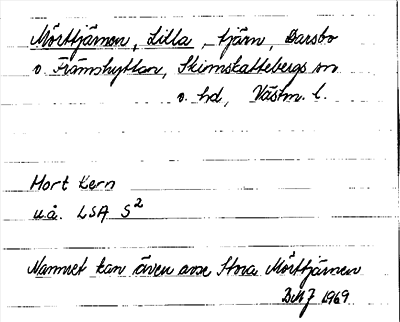 Mörttjärnen, Lilla, tjärn, Darsbo
o. Främshyttan, Skinnskattebergs sn
o. hd, Västm. l.
Mort Kern
u.å. LSA S2
Namnet kan även avse Stora Mörttjärnen
1969